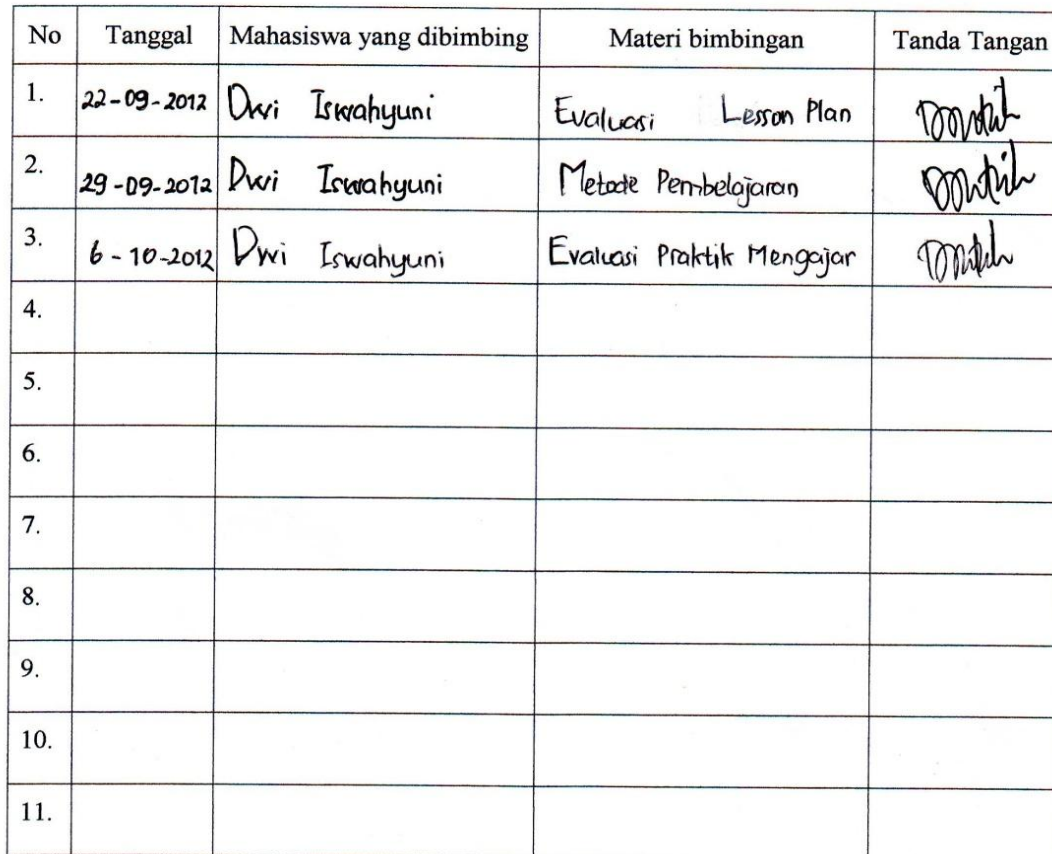 No Tanggal Mahasiswa yang dibimbing Materi bimbingan Tanda Tangan
1. 22-09-2012 Dwi Iswahyuni Evaluasi Lesson Plan
2. 29-09-2012 Dwi Iswahyuni Metode Pembelajaran
3. 6-10-2012 Dwi Iswahyuni Evaluasi Praktik Mengajar
4.
5.
6.
7.
8.
9.
10.
11.